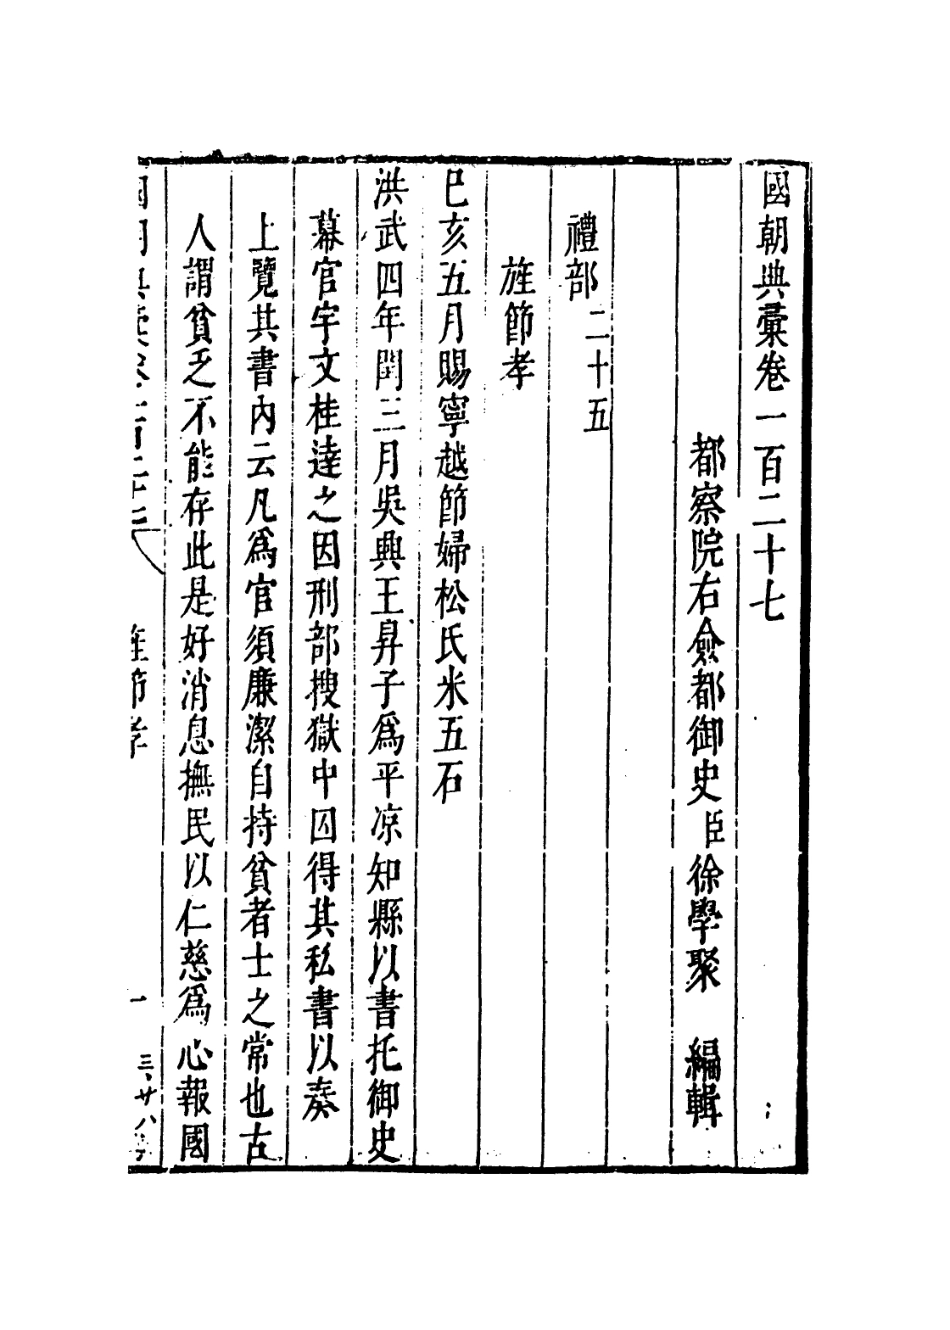 國朝典彙卷一百二十七
都察院右僉都御史臣徐學聚　編輯
禮部二十五
旌節孝
巳亥五月賜寧越節婦松氏米五石
洪武四年閏三月吳興王昇子爲平凉知縣以書托御史
幕官宇文桂達之因刑部搜獄中囚得其私書以奏
上覽其書內云凡爲官須廉潔自持貧者士之常也古
人謂貧乏不能存此是好消息撫民以仁慈爲心報國
旌節孝
一